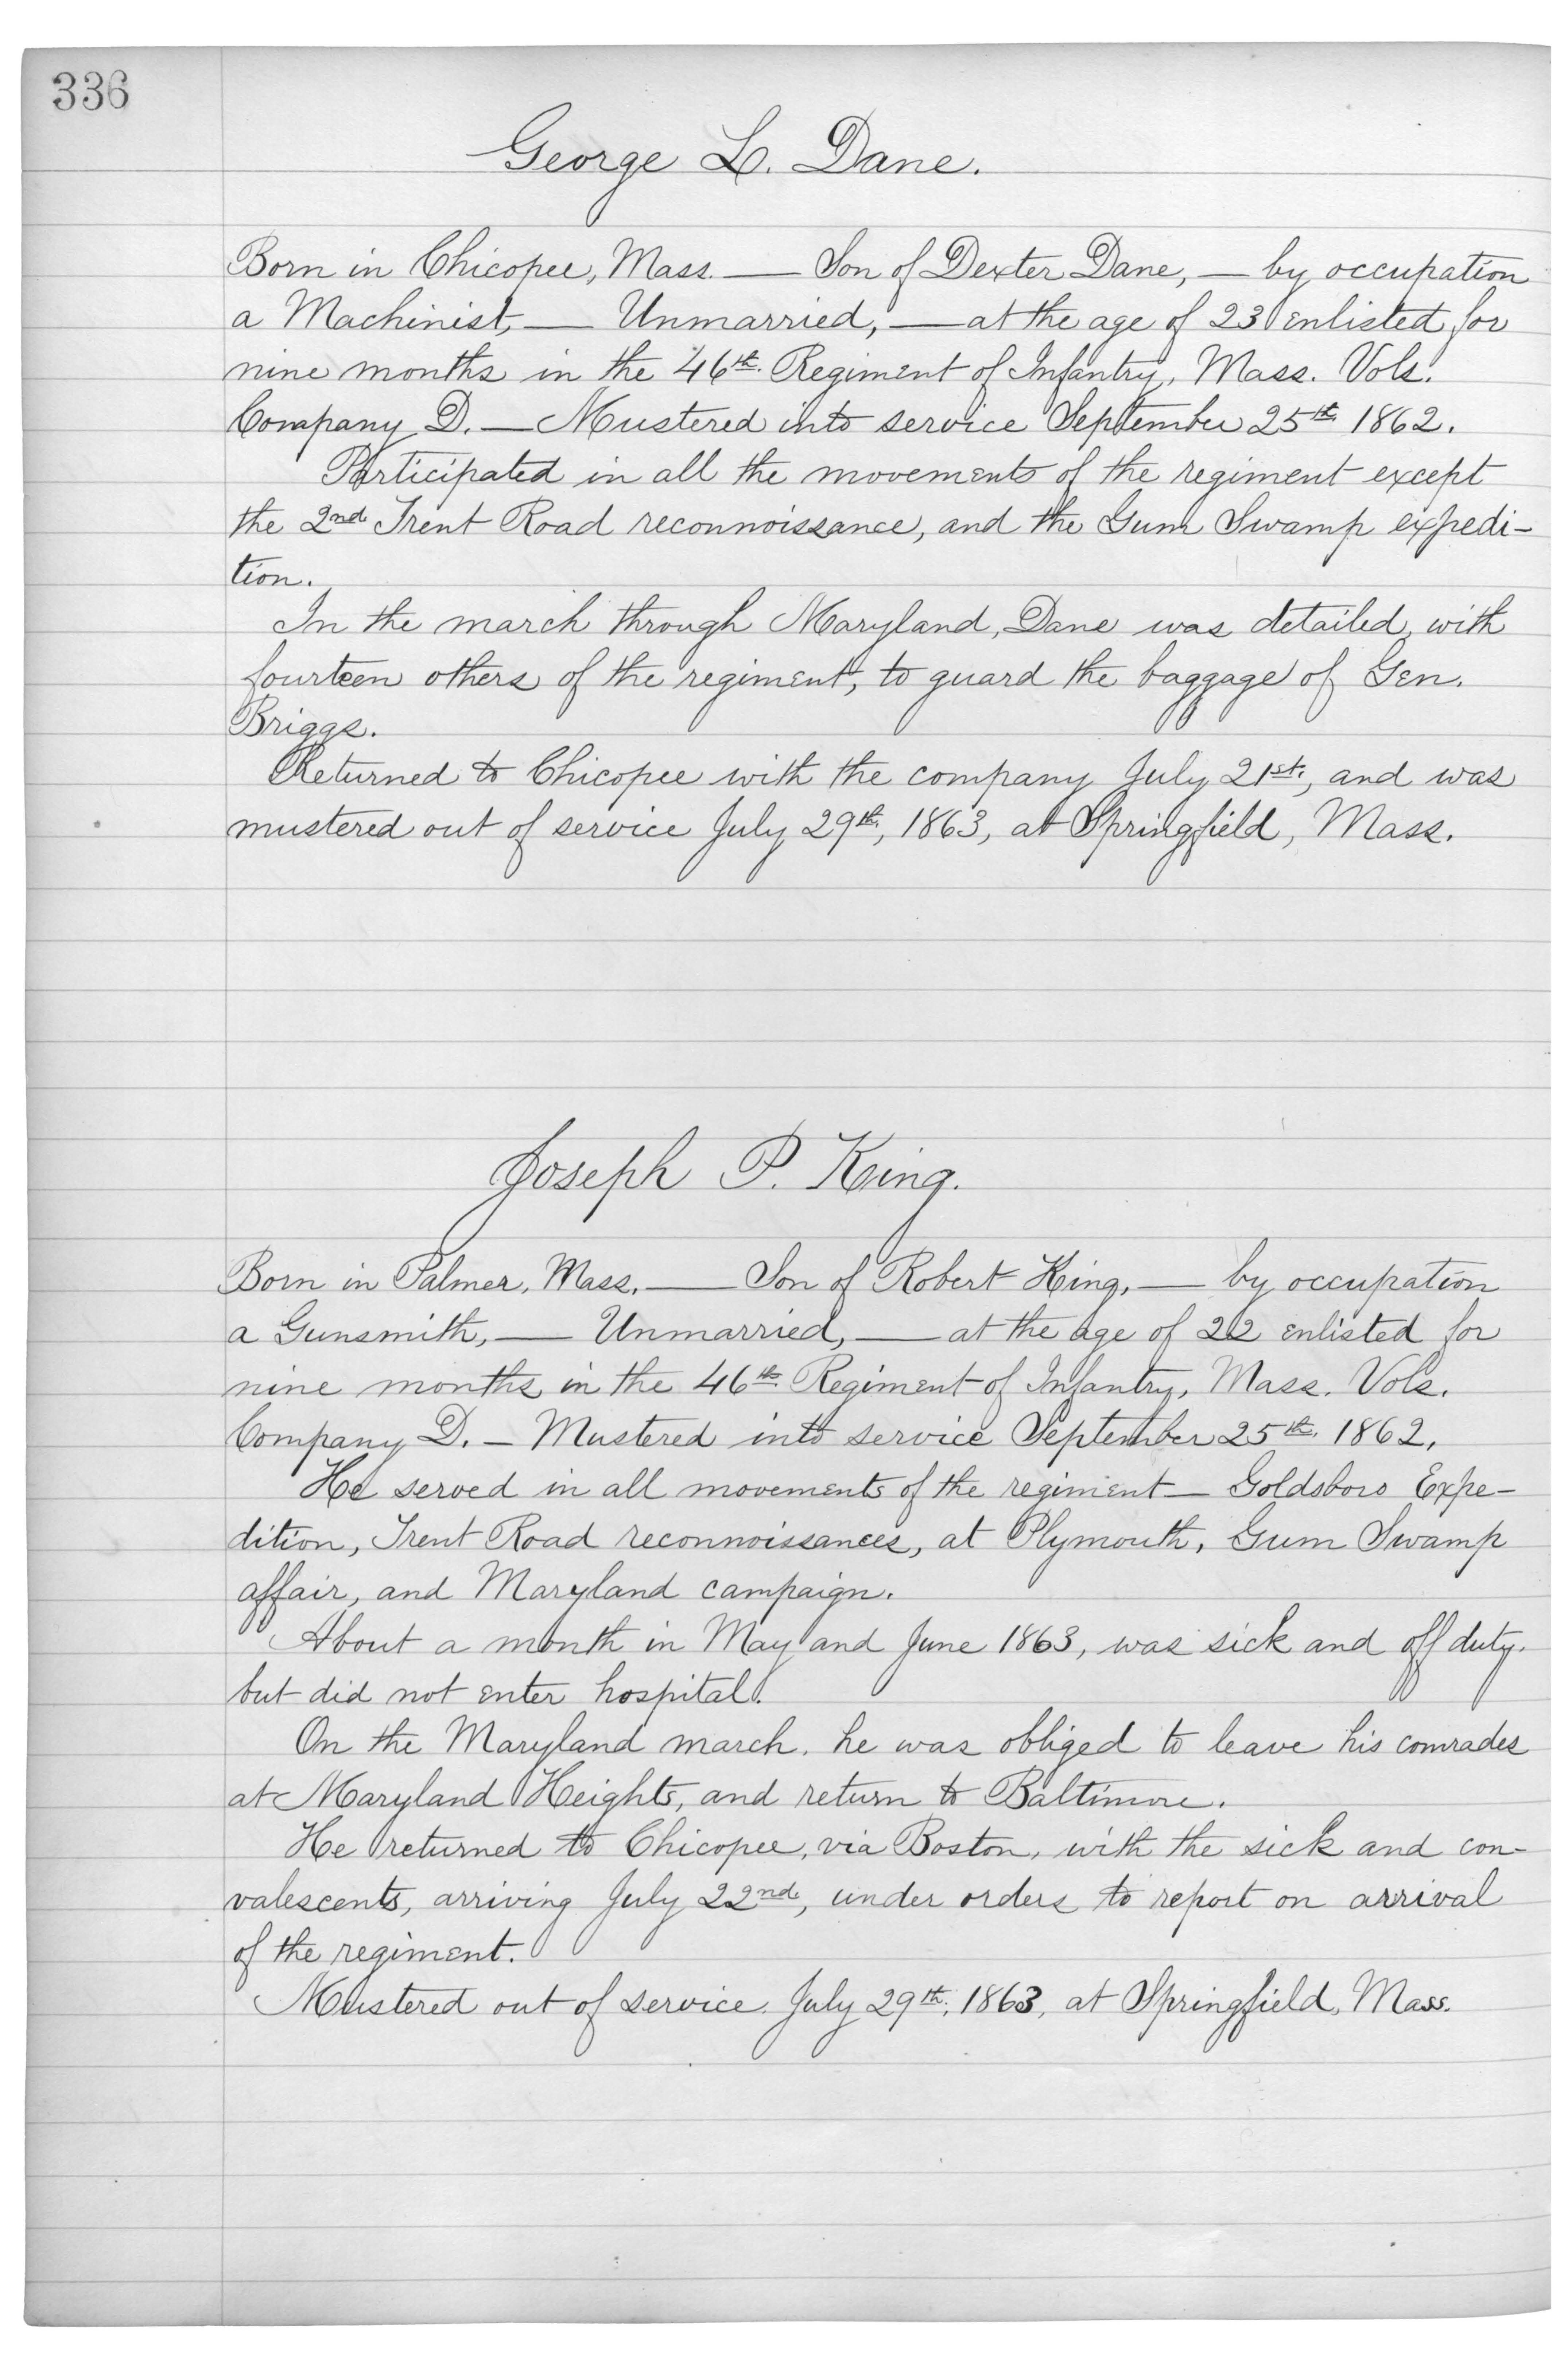 336
George L. Dane.
Born in Chicopee, Mass. — Son of Dexter Dane, — by occupation
a Machinist, — Unmarried, — at the age of 23 enlisted for
nine months in the 46th. Regiment of Infantry, Mass. Vols.
Company D. — Mustered into service September 25th. 1862.
Participated in all the movements of the regiment except
the 2nd. Trent Road reconnoissance, and the Gum Swamp expedi-
tion.
In the march through Maryland, Dane was detailed, with
fourteen others of the regiment, to guard the baggage of Gen.
Briggs.
Returned to Chicopee with the company July 21st., and was
mustered out of service July 29th., 1863, at Springfield, Mass.
Joseph P. King.
Born in Palmer, Mass. — Son of Robert King, — by occupation
a Gunsmith, — Unmarried, — at the age of 22 enlisted for
nine months in the 46th. Regiment of Infantry, Mass. Vols.
Company D. — Mustered into service September 25th. 1862.
He served in all movements of the regiment — Goldsboro Expe-
dition, Trent Road reconnoissances, at Plymouth, Gum Swamp
affair, and Maryland campaign.
About a month in May and June 1863, was sick and off duty,
but did not enter hospital.
On the Maryland march, he was obliged to leave his comrades
at Maryland Heights, and return to Baltimore.
He returned to Chicopee, via Boston, with the sick and con-
valescents, arriving July 22nd., under orders to report on arrival
of the regiment.
Mustered out of service July 29th. 1863, at Springfield, Mass.